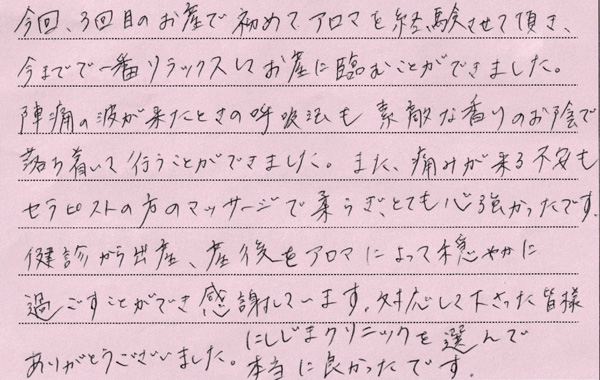 今回、3回目のお産で初めてアロマを経験させて頂き、
今までで一番リラックスしてお産に臨むことができました。
陣痛の波が来たときの呼吸法も素敵な香りのお陰で
落ち着いて行うことができました。また、痛みが来る不安も
セラピストの方のマッサージで柔らぎ、とても心強かったです。
健診から出産、産後をアロマによって穏やかに
過ごすことができ感謝しています。対応して下さった皆様
ありがとうございました。にしじまクリニックを選んで
本当に良かったです。